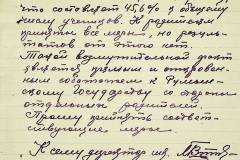 что составляет 45,6% к общему
числу учеников. К родителям
приняты все меры, но резуль-
татов от этого нет.
Такой возмутительный факт
является прямым и откровен-
ным саботажем к Румын-
скому Государству со стороны
отдельных родителей.
Прошу принять соответ-
ствующие меры.
К сему директор шк.